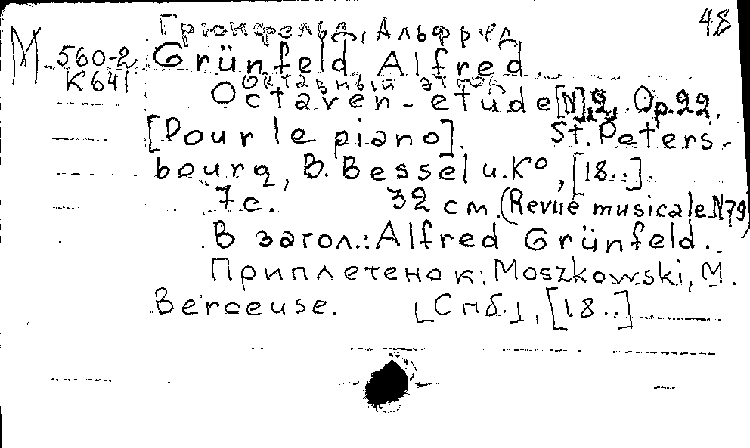 48
Грюнфельд, Альфред
М 560-2 Grünfeld, Alfred.
К641 Октавный этюд
Octaven-etude [N] 2, Op. 22.
[Pour le piano]. St. Peters-
bourg, B. Bessel u. Kº, [18..].
7 с. 32 см. (Revue musicale N79)
В загол.: Alfred Grünfeld.
Приплетено к: Moszkowski, M.
Berceuse. [Спб.], [18..]